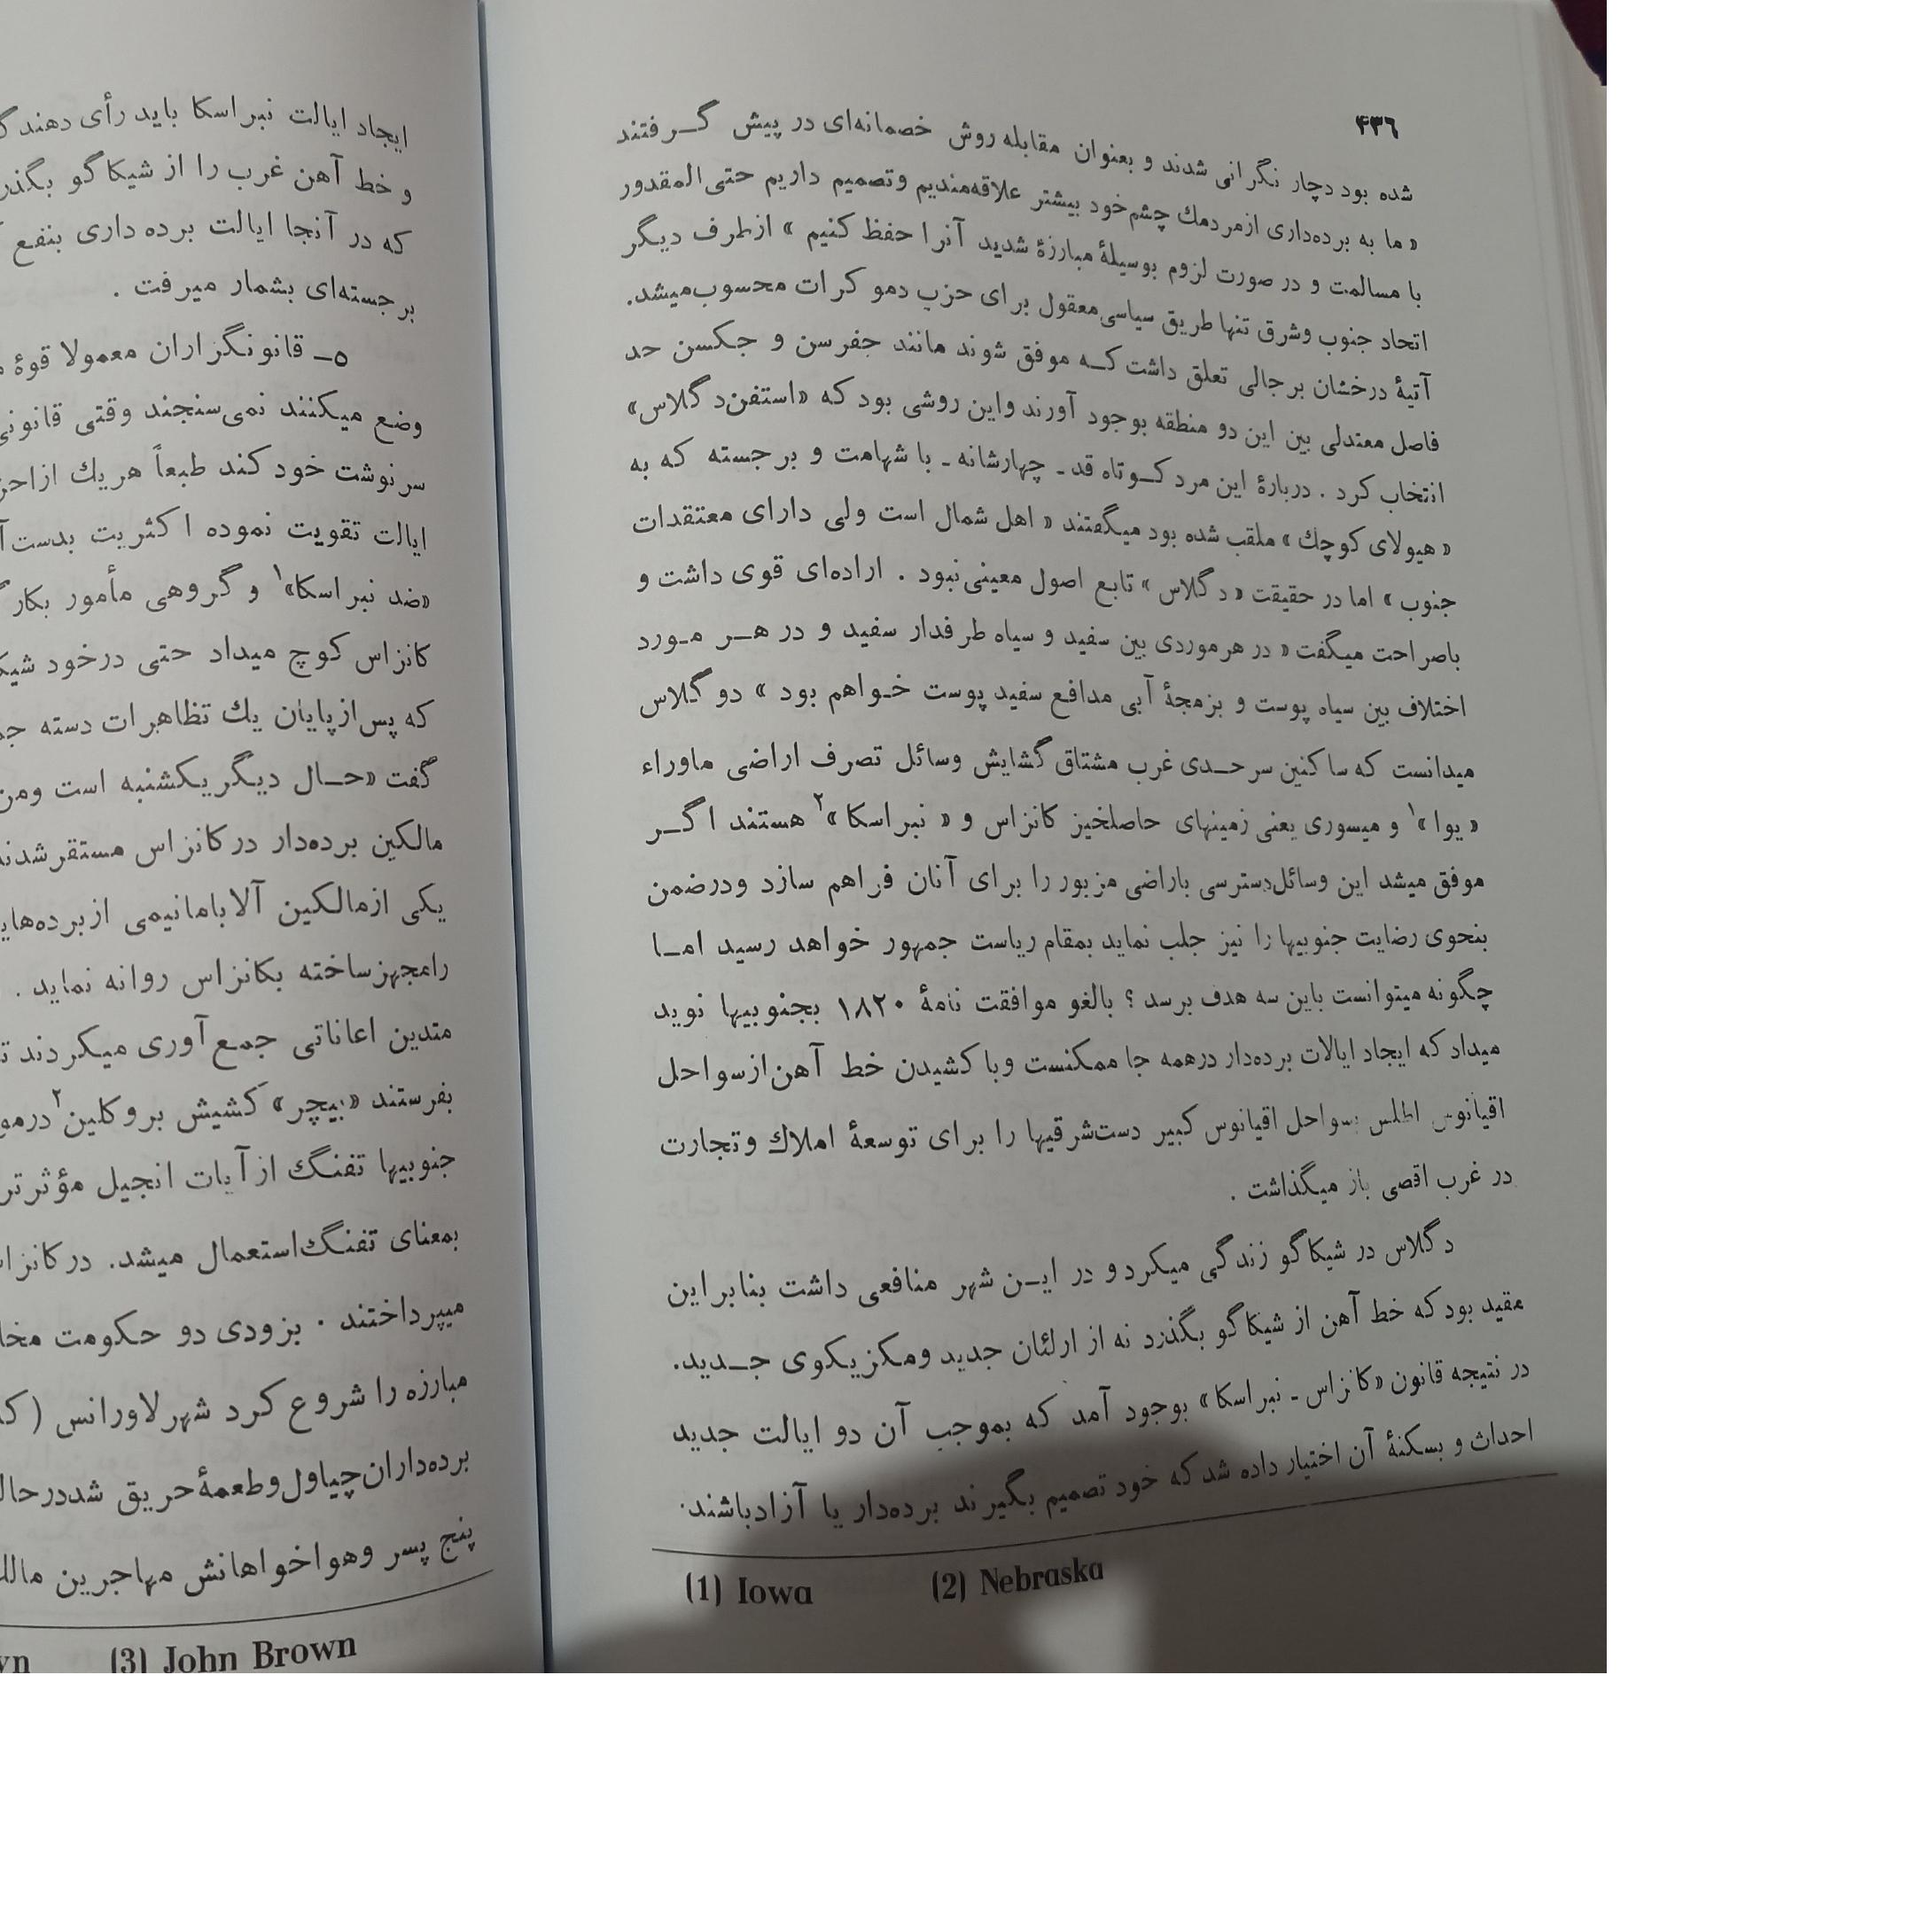 ۴۳۶
شده بود دچار نگرانی شدند و بعنوان مقابله روش خصمانه‌ای در پیش گرفتند
« ما به برده‌داری ازمردمك چشم‌خود بیشتر علاقه‌مندیم وتصمیم داریم حتی‌المقدور
با مسالمت و در صورت لزوم بوسیلهٔ مبارزهٔ شدید آنرا حفظ کنیم » ازطرف دیگر
اتحاد جنوب وشرق تنها طریق سیاسی‌معقول برای حزب دموکرات محسوب‌میشد.
آتیهٔ درخشان برجالی تعلق داشت که موفق شوند مانند جفرسن و جکسن حد
فاصل معتدلی بین این دو منطقه بوجود آورند واین روشی بود که «استفن‌دگلاس»
انتخاب کرد . دربارهٔ این مرد کوتاه قد ـ چهارشانه ـ با شهامت و برجسته که به
« هیولای کوچك » ملقب شده بود میگفتند « اهل شمال است ولی دارای معتقدات
جنوب » اما در حقیقت « دگلاس » تابع اصول معینی‌نبود . اراده‌ای قوی داشت و
باصراحت میگفت « در هرموردی بین سفید و سیاه طرفدار سفید و در هر مورد
اختلاف بین سیاه پوست و بزمجهٔ آبی مدافع سفید پوست خواهم بود » دوگلاس
میدانست که ساکنین سرحدی غرب مشتاق گشایش وسائل تصرف اراضی ماوراء
« یوا »۱ و میسوری یعنی زمینهای حاصلخیز کانزاس و « نبراسکا »۲ هستند اگر
موفق میشد این وسائل‌دسترسی باراضی مزبور را برای آنان فراهم سازد ودرضمن
بنحوی رضایت جنوبیها را نیز جلب نماید بمقام ریاست جمهور خواهد رسید اما
چگونه میتوانست باین سه هدف برسد ؟ بالغو موافقت نامهٔ ۱۸۲۰ بجنوبیها نوید
میداد که ایجاد ایالات برده‌دار درهمه جا ممکنست وبا کشیدن خط آهن‌ازسواحل
اقیانوس اطلس بسواحل اقیانوس کبیر دست‌شرقیها را برای توسعهٔ املاك وتجارت
در غرب اقصی باز میگذاشت .
دگلاس در شیکاگو زندگی میکرد و در این شهر منافعی داشت بنابراین
مقید بود که خط آهن از شیکاگو بگذرد نه از ارلئان جدید ومکزیکوی جدید.
در نتیجه قانون «کانزاس ـ نبراسکا» بوجود آمد که بموجب آن دو ایالت جدید
احداث و بسکنهٔ آن اختیار داده شد که خود تصمیم بگیرند برده‌دار یا آزادباشند.
(1) Iowa (2) Nebraska
ایجاد ایالت نبراسکا باید رأی دهند
و خط آهن غرب را از شیکاگو
که در آنجا ایالت برده داری بنفع
برجسته‌ای بشمار میرفت .
۵ـ قانونگزاران معمولا قوهٔ
وضع میکنند نمی‌سنجند وقتی
سرنوشت خود کند طبعاً هریك
ایالت تقویت نموده اکثریت بدست
«ضد نبراسکا»۱ و گروهی مأمور بکار
کانزاس کوچ میداد حتی درخود
که پس‌ازپایان یك تظاهرات دسته
گفت «حال دیگر یکشنبه است ومن
مالکین برده‌دار درکانزاس
یکی ازمالکین آلاباما‌نیمی
رامجهزساخته بکانزاس روانه نماید .
متدین اعاناتی جمع‌آوری میکردند
بفرستند «بیچر» کشیش بروکلین۲
جنوبیها تفنگ ازآیات انجیل مؤثرتر
بمعنای تفنگ‌استعمال میشد.
میپرداختند . بزودی دو حکومت
مبارزه را شروع کرد شهرلاورانس
برده‌داران‌چپاول‌وطعمهٔ‌حریق
پنج پسر وهواخواهانش مهاجرین
(3) John Brown